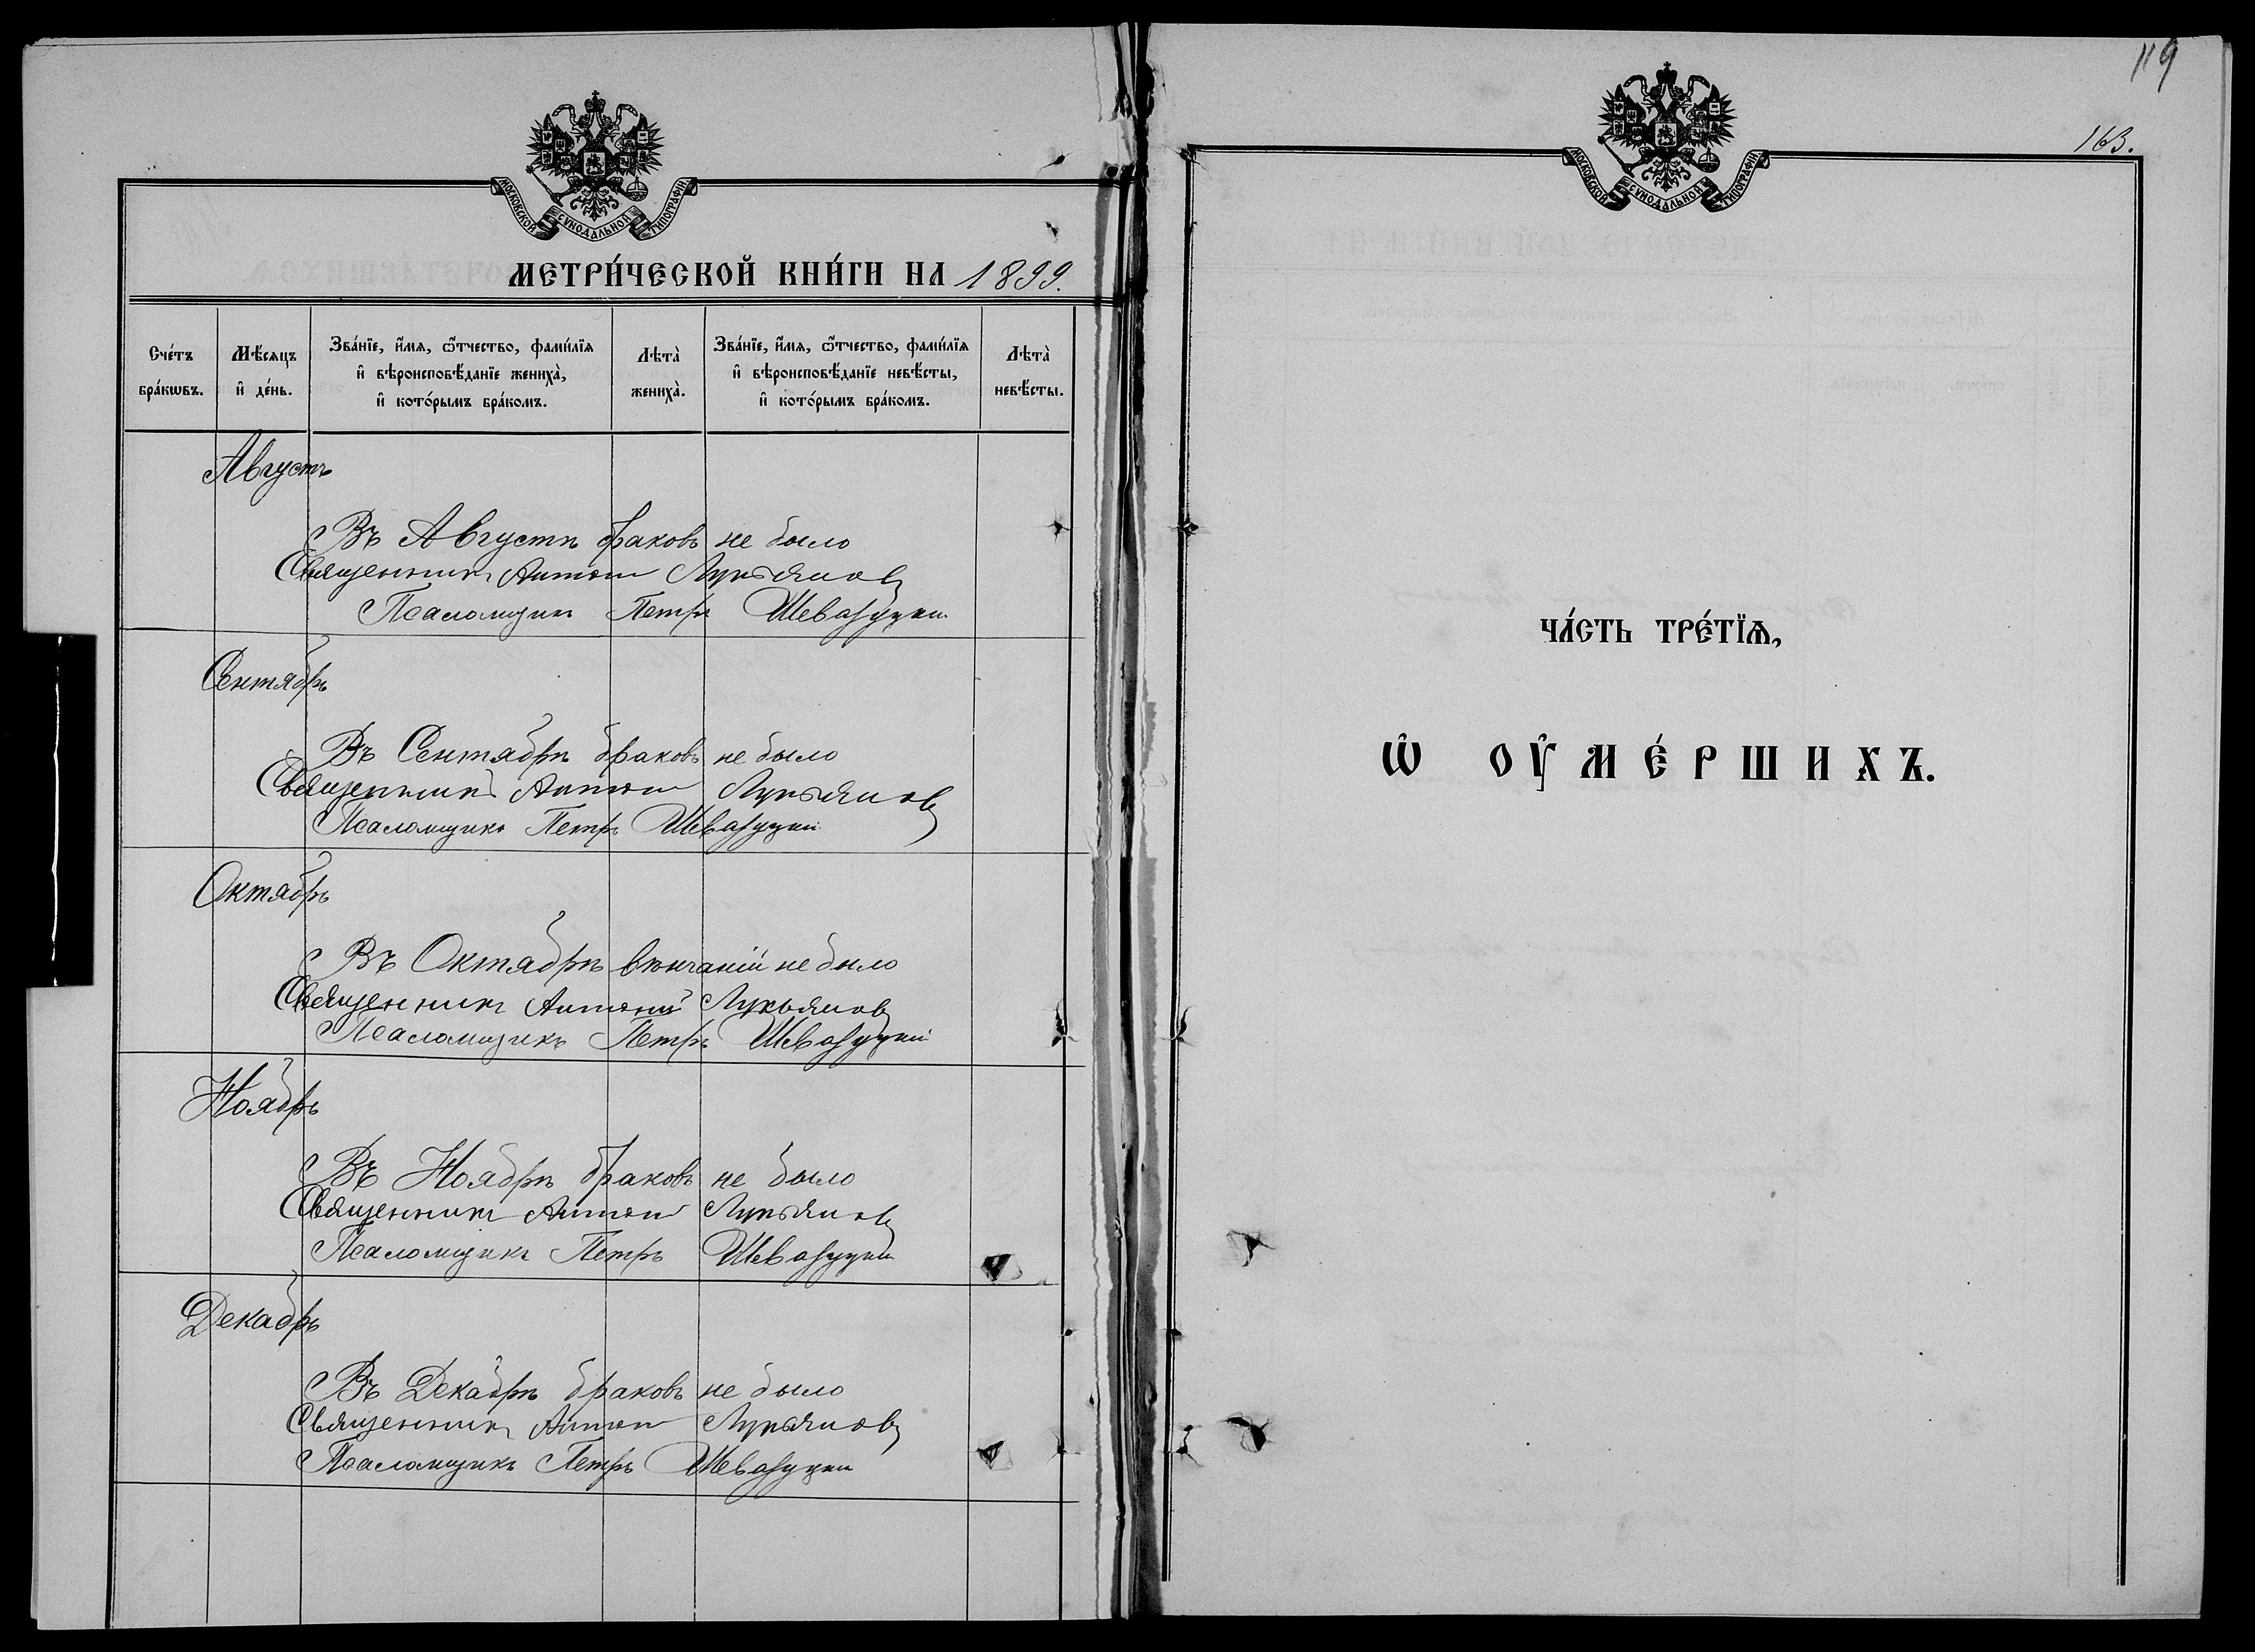 МОСКОВСКОЙ СѴНОДАЛЬНОЙ ТИПОГРАФІИ.
МЕТРИ́ЧЕСКОЙ КНИ́ГИ НА 1899.
Сче́тъ бра́кѡвъ.
Мѣ́сяцъ и҆ де́нь.
Зва́нїе, и҆́мѧ, ѻ҆́тчество, фами́лїѧ
и҆ вѣроисповѣ́данїе жениха̀,
и҆ кото́рымъ бра́комъ.
Лѣта̀ жениха̀.
Зва́нїе, и҆́мѧ, ѻ҆́тчество, фами́лїѧ
и҆ вѣроисповѣ́данїе невѣ́сты,
и҆ кото́рымъ бра́комъ.
Лѣта̀ невѣ́сты.
Августъ
Въ Августѣ браковъ не было
Священникъ Антоній Лукьяновъ
Псаломщикъ Петръ
Сентябрь
Въ Сентябрѣ браковъ не было
Священникъ Антоній Лукьяновъ
Псаломщикъ Петръ
Октябрь
Въ Октябрѣ вѣнчаній не было
Священникъ Антоній Лукьяновъ
Псаломщикъ Петръ
Ноябрь
Въ Ноябрѣ браковъ не было
Священникъ Антоній Лукьяновъ
Псаломщикъ Петръ
Декабрь
Въ Декабрѣ браковъ не было
Священникъ Антоній Лукьяновъ
Псаломщикъ Петръ
119
163.
МОСКОВСКОЙ СѴНОДАЛЬНОЙ ТИПОГРАФІИ.
ЧА́СТЬ ТРЕ́ТЇѦ,
Ѡ҆ ОУ҆МЕ́РШИХЪ.